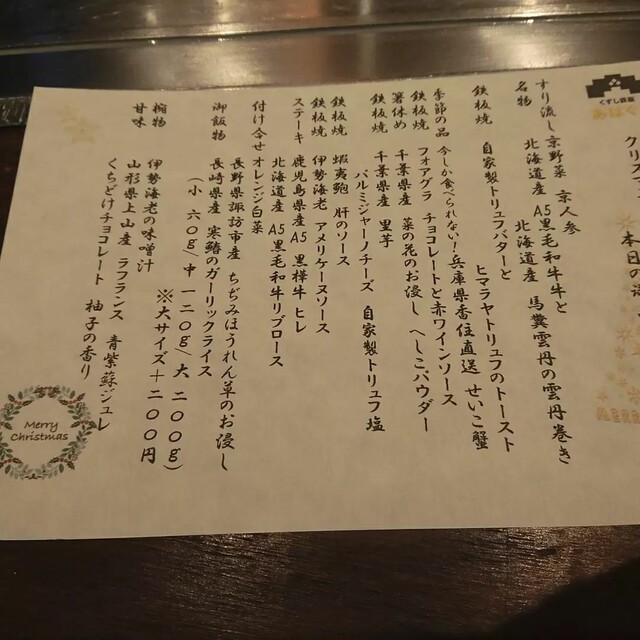 くずし鉄板
あばぐ
クリスマ
本日の
すり流し 京野菜 京人参
名物 北海道産 A5黒毛和牛と
北海道産 馬糞雲丹の雲丹巻き
鉄板焼 自家製トリュフバターと
ヒマラヤトリュフのトースト
季節の品 今しか食べられない!兵庫県香住直送 せいこ蟹
鉄板焼 フォアグラ チョコレートと赤ワインソース
箸休め 千葉県産 菜の花のお浸し へしこパウダー
鉄板焼 千葉県産 里芋
パルミジャーノチーズ 自家製トリュフ塩
鉄板焼 蝦夷鮑 肝のソース
鉄板焼 伊勢海老 アメリケーヌソース
ステーキ 鹿児島県産 A5 黒樺牛 ヒレ
北海道産 A5黒毛和牛リブロース
付け合せ オレンジ白菜
長野県諏訪市産 ちぢみほうれん草のお浸し
御飯物 長崎県産 寒鰆のガーリックライス
(小 六〇g/中 一二〇g/大 二〇〇g)
※大サイズ+二〇〇円
椀物 伊勢海老の味噌汁
甘味 山形県上山産 ラフランス 青紫蘇ジュレ
くちどけチョコレート 柚子の香り
Merry
Christmas